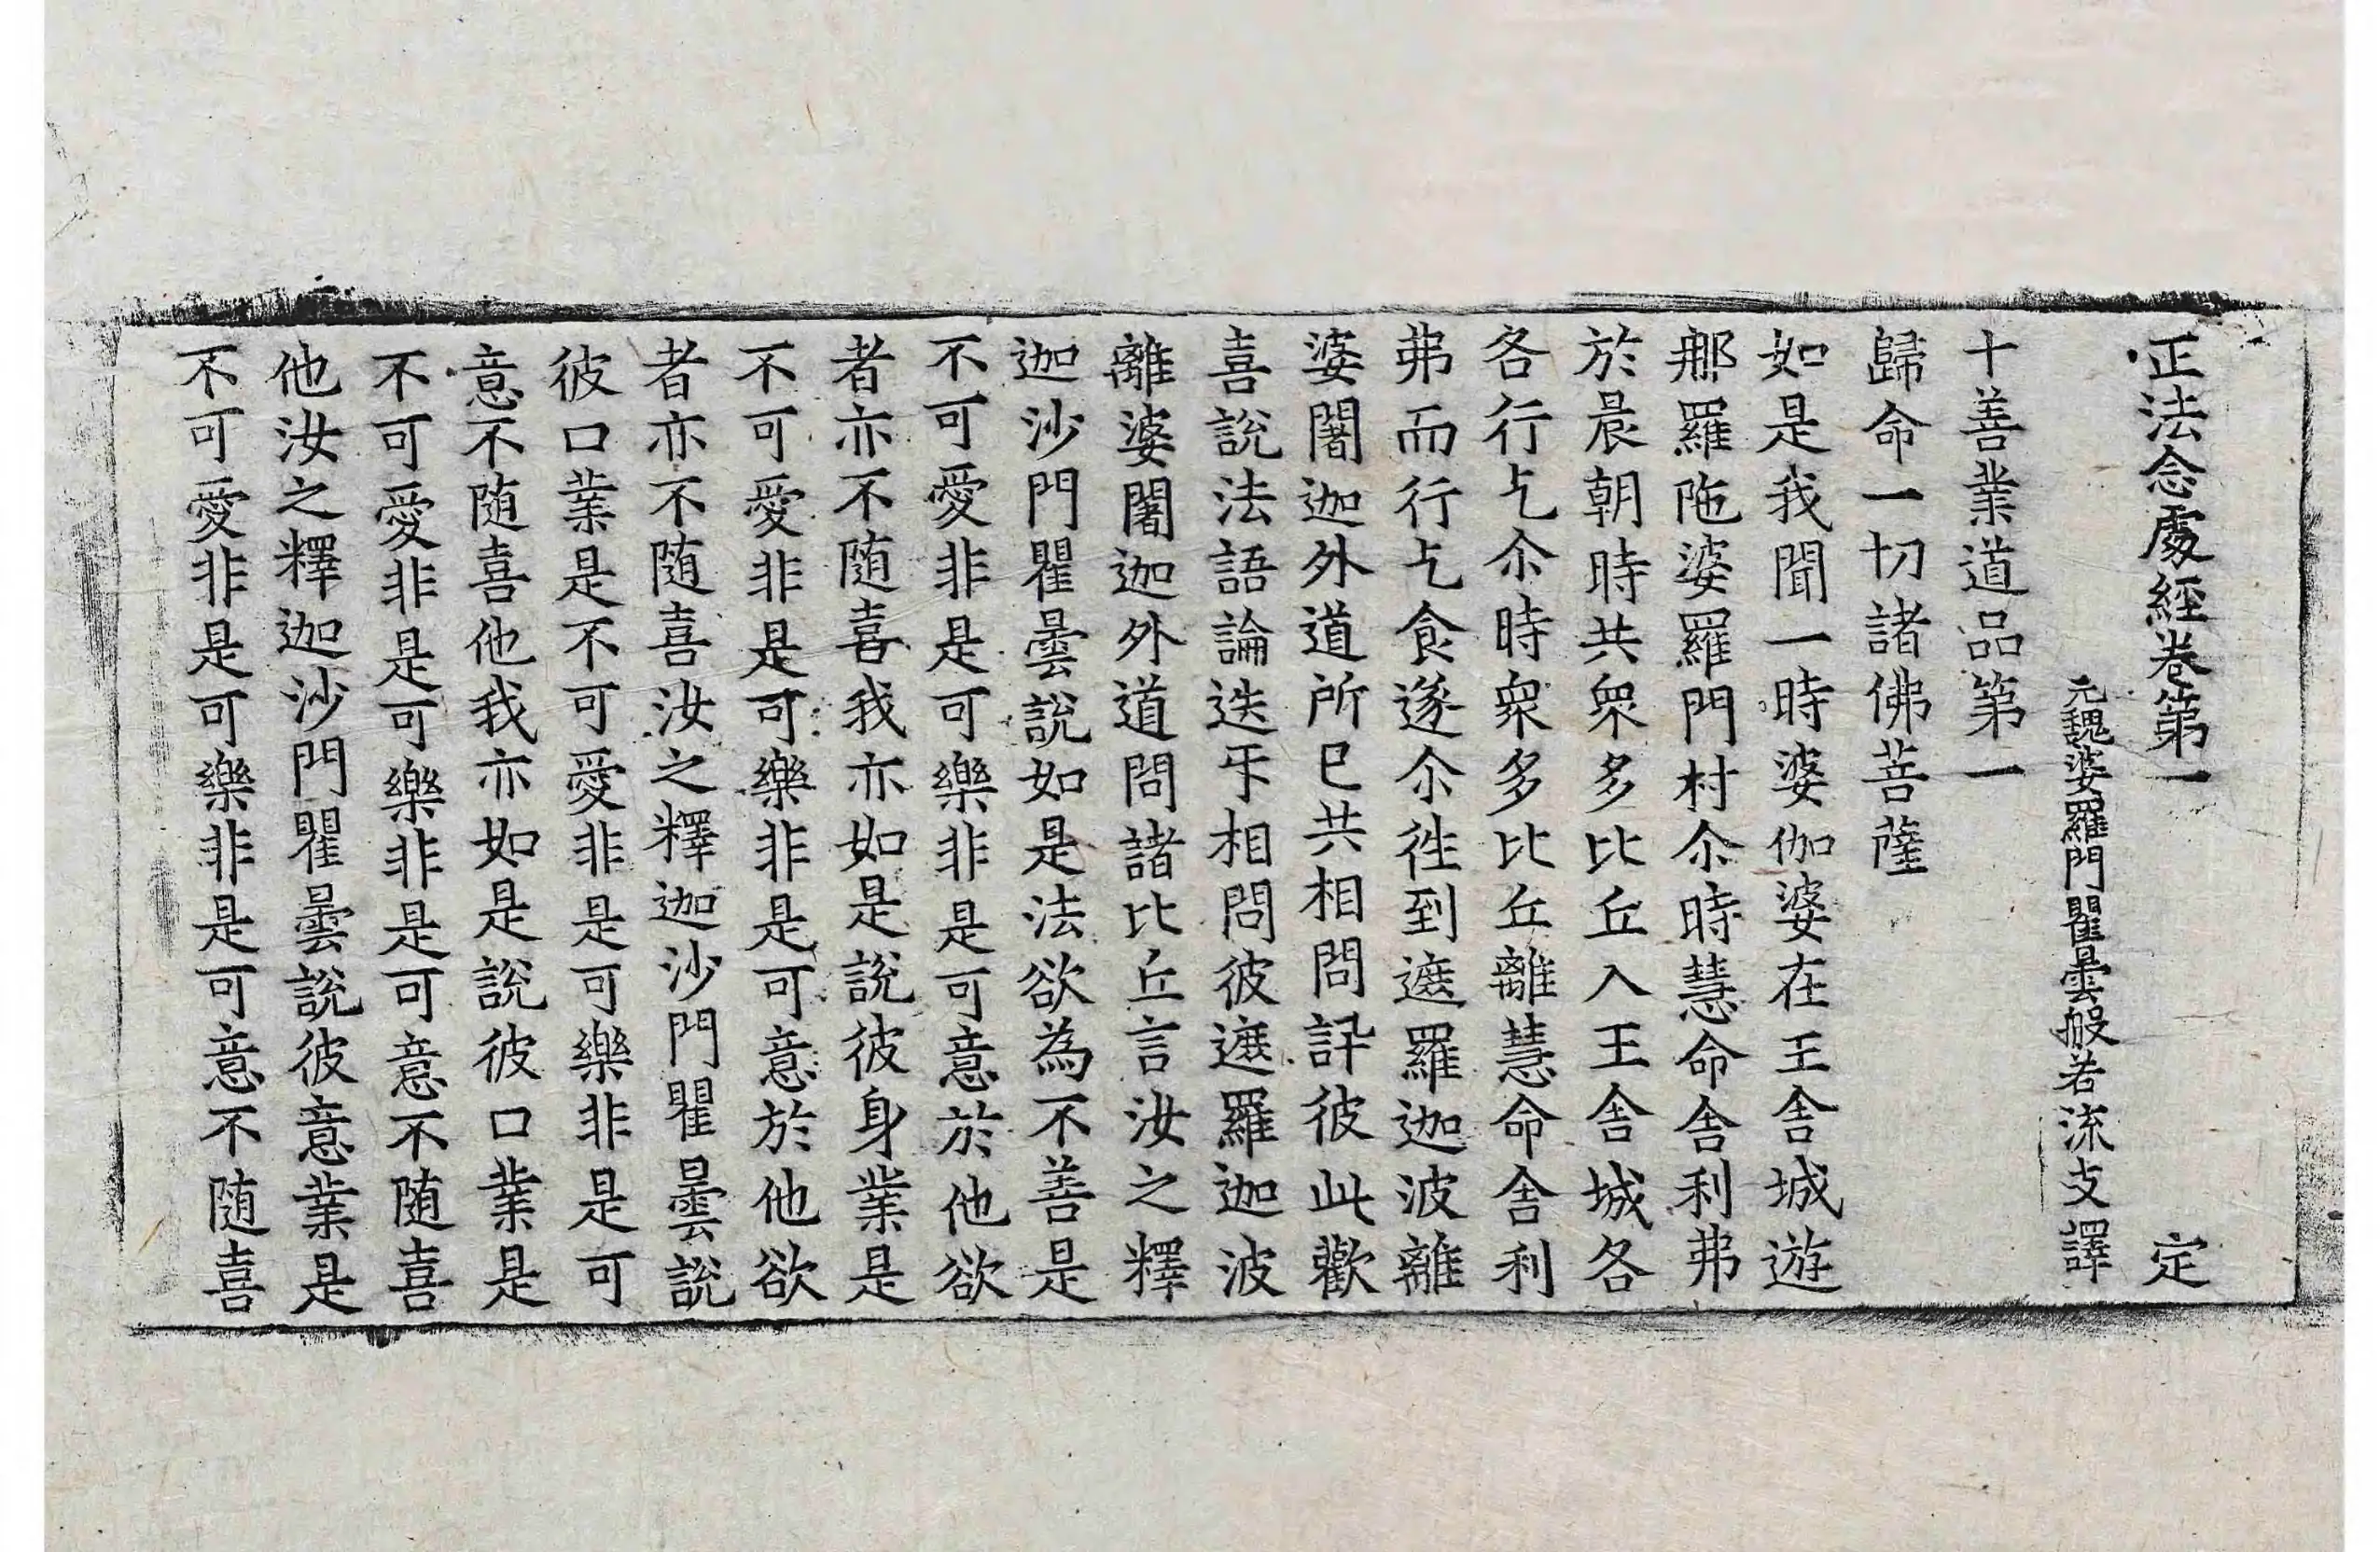 正法念處經卷第一 定
元魏婆羅門瞿曇般若流支譯
十善業道品第一
歸命一切諸佛菩薩
如是我聞一時婆伽婆在王舍城遊
那羅陁婆羅門村尒時慧命舍利弗
於晨朝時共眾多比丘入王舍城各
各行乞尒時眾多比丘離慧命舍利
弗而行乞食遂尒徃到遮羅迦波離
婆闍迦外道所已共相問訊彼此歡
喜說法語論迭𠄔相問彼遮羅迦波
離婆闍迦外道問諸比丘言汝之釋
迦沙門瞿曇說如是法欲為不善是
不可愛非是可樂非是可意於他欲
者亦不随喜我亦如是說彼身業是
不可愛非是可樂非是可意於他欲
者亦不随喜汝之釋迦沙門瞿曇說
彼口業是不可愛非是可樂非是可
意不随喜他我亦如是說彼口業是
不可愛非是可樂非是可意不随喜
他汝之釋迦沙門瞿曇說彼意業是
不可愛非是可樂非是可意不随喜